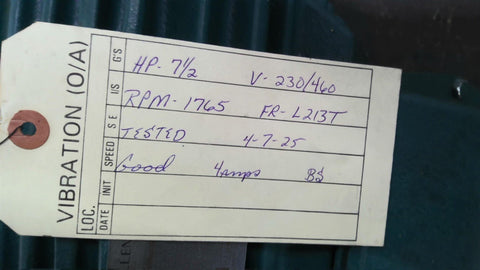 VIBRATION (O/A)
LOC.
DATE INIT SPEED S E I/S G'S
HP- 7 1/2 V- 230/460
RPM- 1765 FR- L213T
TESTED 4-7-25
Good 4amps
LEN